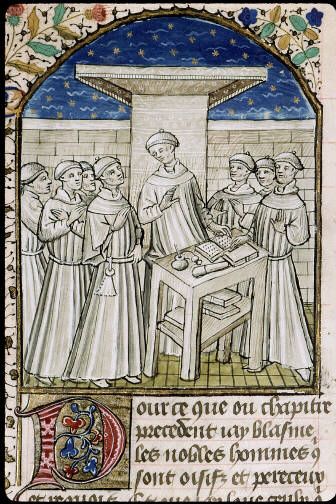 Pour ce que ou chapitre
precedent iay blasme
les nobles hommes q
sont oisifz et pereceux